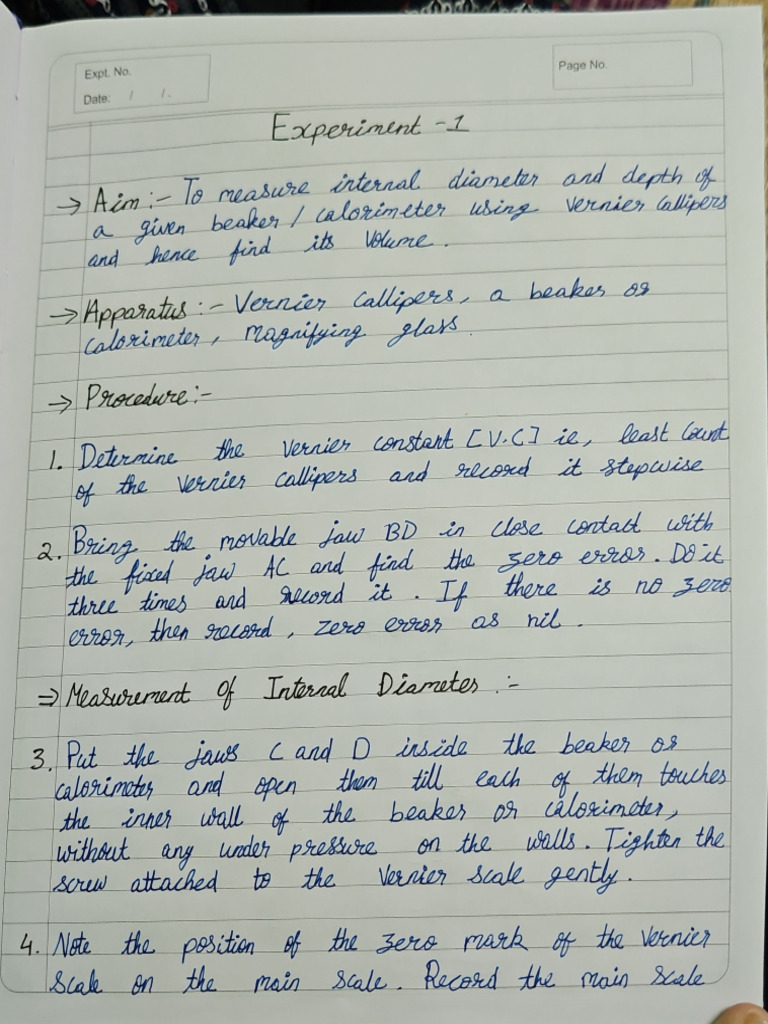 Expt. No.
Page No.
Date: / /.
Experiment -1
→ Aim :- To measure internal diameter and depth of
a given beaker / calorimeter using vernier callipers
and hence find its volume.
→ Apparatus :- Vernier callipers, a beaker or
calorimeter, magnifying glass.
→ Procedure:-
1. Determine the vernier constant [V.C] ie, least count
of the vernier callipers and record it stepwise
2. Bring the movable jaw BD in close contact with
the fixed jaw AC and find the zero error. Do it
three times and record it. If there is no zero
error, then record, zero error as nil.
⇒ Measurement Of Internal Diameter :-
3. Put the jaws C and D inside the beaker or
calorimeter and open them till each of them touches
the inner wall of the beaker or calorimeter,
without any under pressure on the walls. Tighten the
screw attached to the vernier scale gently.
4. Note the position of the zero mark of the vernier
scale on the main scale. Record the main scale